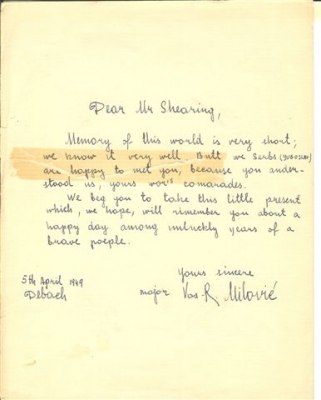 Dear Mr Shearing,
Memory of this world is very short;
we know it very well. Butt we Serbs
are happy to met you, because you under-
stood us, yours wor's comarades.
We beg you to take this little present
which, we hope, will remember you about a
happy day among unluckly years of a
brave poeple.
Yours sincere
5th April 1949
Debach
major Vas. R. Milović